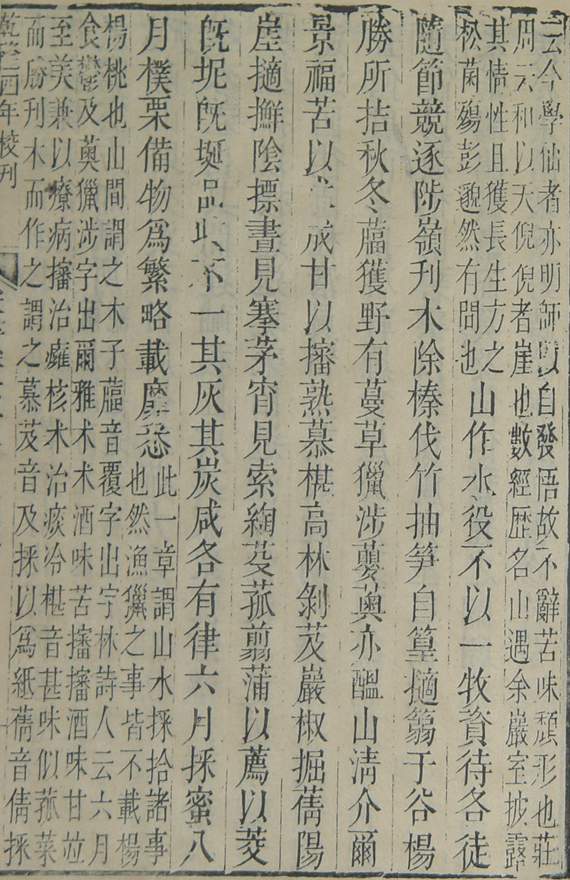 云今學仙者亦明師以自發悟故不辭苦味頹形也莊
周云和以天倪倪者崖也數經歷名山遇余巖室披露
其情性且獲長生方之
松菌殤彭邈然有間也
山作水役不以一牧資待各徒
隨節競逐陟嶺刋木除榛伐竹抽笋自篁擿篛于谷楊
勝所拮秋冬藟獲野有蔓草獵涉蘡薁亦醞山清介爾
景福苦以成甘以熟慕椹高林剝芨巖椒掘蒨陽
崖擿擑陰摽晝見搴茅宵見索綯芟菰翦蒲以薦以茭
旣坭旣埏品收不一其灰其炭咸各有律六月採蜜八
月樸栗備物爲繁略載靡悉
此一章謂山水採拾諸事
也然漁獵之事皆不載楊
楊桃也山間謂之木子藟音覆字出字林詩人云六月
食鬱及薁獵涉字出爾雅术术酒味苦酒味甘竝
至美兼以療病治癰核术治痰冷椹音甚味似菰菜
而勝刋木而作之謂之慕芨音及採以爲紙蒨音倩採
乾隆四年校刊